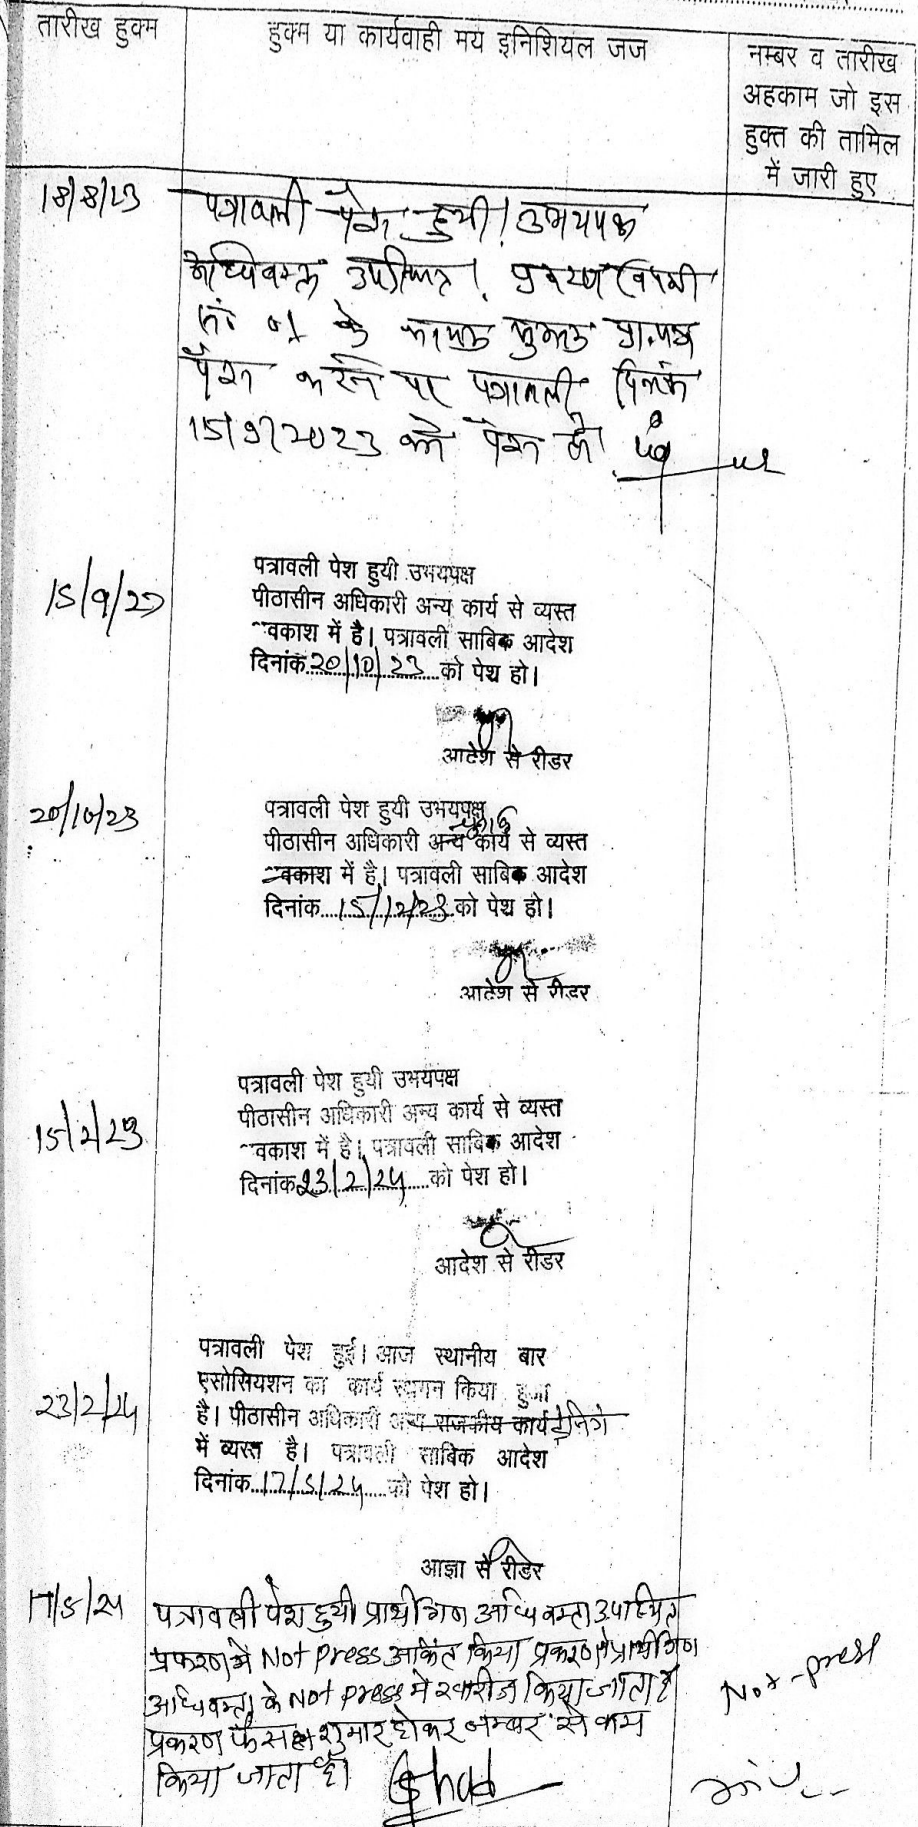 तारीख हुक्म
हुक्म या कार्यवाही मय इनिशियल जज
नम्बर व तारीख
अहकाम जो इस
हुक्त की तामिल
में जारी हुए
18/8/23
पत्रावली पेश हुयी। उभयपक्ष
अधिवक्ता उपस्थित। प्रकरण
सं 01 के प्रा.पत्र
पेश करने पर पत्रावली दिनांक
15/9/2023 को पेश हो।
15/9/23
पत्रावली पेश हुयी उभयपक्ष
पीठासीन अधिकारी अन्य कार्य से व्यस्त
वकाश में है। पत्रावली साबिक आदेश
दिनांक 20/10/23 को पेश हो।
आदेश से रीडर
20/10/23
पत्रावली पेश हुयी उभयपक्ष
पीठासीन अधिकारी अन्य कार्य से व्यस्त
वकाश में है। पत्रावली साबिक आदेश
दिनांक 15/12/23 को पेश हो।
आदेश से रीडर
15/12/23
पत्रावली पेश हुयी उभयपक्ष
पीठासीन अधिकारी अन्य कार्य से व्यस्त
वकाश में है। पत्रावली साबिक आदेश
दिनांक 23/2/24 को पेश हो।
आदेश से रीडर
23/2/24
पत्रावली पेश हुई। आज स्थानीय बार
एसोसियशन का कार्य स्थगन किया हुआ
है। पीठासीन अधिकारी अन्य राजकीय कार्य ट्रेनिंग
में व्यस्त है। पत्रावली साबिक आदेश
दिनांक 17/5/24 को पेश हो।
आज्ञा से रीडर
17/5/24
पत्रावली पेश हुयी प्रार्थीगण अधिवक्ता उपस्थित
प्रकरण में Not Press अंकित किया प्रकरण प्रार्थीगण
अधिवक्ता के Not press में खारीज किया जाता है
प्रकरण फैसल शुमार होकर नम्बर से कम
किया जाता है।
Not-press